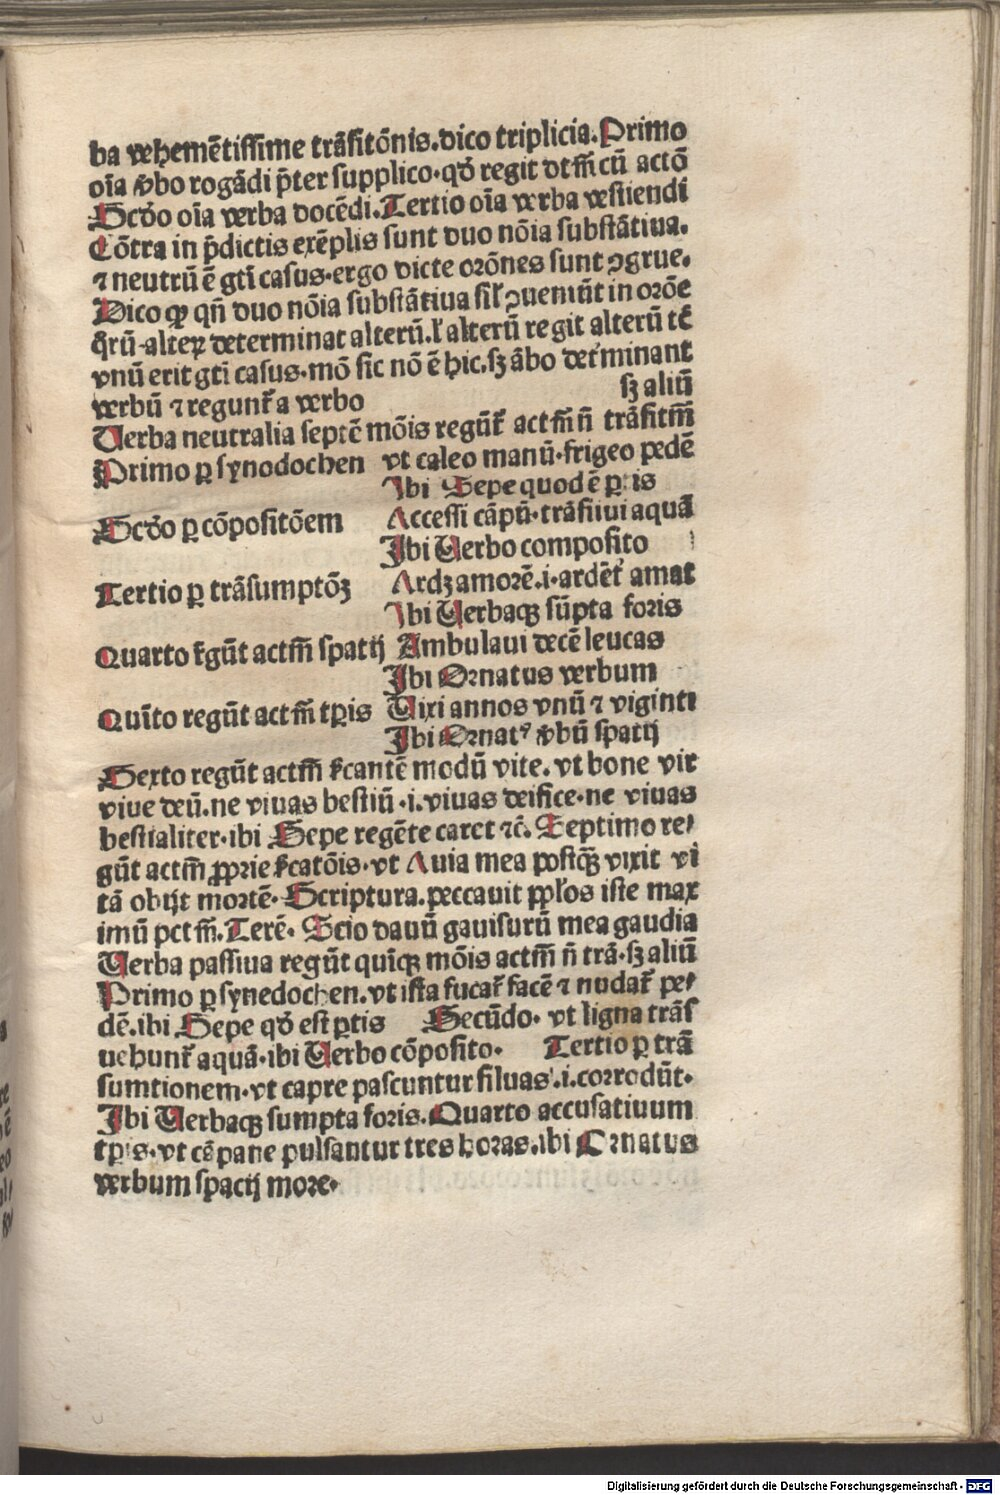 ba vehemētissime trāsitōnis. dico triplicia. Primo
oīa ꝟbo rogādi p̄ter supplico. qd̄ regit dtm̄ cū actō
Scdo oīa verba docēdi. Tertio oīa verba vestiendi
Cōtra in p̄dictis exēplis sunt duo nōia substātiua.
⁊ neutrū ē gtī casus. ergo dicte orōnes sunt ꝯgrue.
Dico ꝙ qn̄ duo nōia substātiua sil' ꝯueniūt in orōe
q̄rū alteꝝ determinat alterū. l' alterū regit alterū tc̄
vnū erit gtī casus. mō sic nō ē hic. sꝫ ābo det'minant
verbū ⁊ regunt᷑ a verbo sꝫ aliū
Uerba neutralia septē mōis regūt᷑ actm̄ n̄ trāsitm̄
Primo ꝑ synodochen vt caleo manū. frigeo pedē
Ibi Sepe quod ē ꝑtis
Scdo ꝑ cōpositōem Accessi cāpū. trāsiiui aquā
Ibi Uerbo composito
Tertio ꝑ trāsumptōꝫ Ardꝫ amorē. i. ardēt᷑ amat
Ibi Uerbaqꝫ sūpta foris
Quarto r̄gūt actm̄ spatij Ambulaui decē leucas
Ibi Ornatus verbum
Quīto regūt actm̄ tꝑis Uixi annos vnū ⁊ viginti
Ibi Ornatꝰ ꝟbū spatij
Sexto regūt actm̄ s̄cantē modū vite. vt bone vir
viue deū. ne viuas bestiū. i. viuas deifice. ne viuas
bestialiter. ibi Sepe regēte caret ⁊c̄. Septimo re⸗
gūt actm̄ ꝓprie s̄catōis. vt Auia mea postqꝫ̄ vixit vi
tā obijt mortē. Scriptura. peccauit ppl'os iste max
imū pctm̄. Terē. Scio dauū gauisurū mea gaudia
Uerba passiua regūt quīqꝫ mōis actm̄ n̄ trā. sꝫ aliū
Primo ꝑ synedochen. vt ista fucat᷑ facē ⁊ nudat᷑ pe⸗
dē. ibi Sepe qd̄ est ꝑtis Secūdo. vt ligna trās
uehunt᷑ aquā. ibi Uerbo cōposito. Tertio ꝑ trā
sumtionem. vt capre pascuntur siluas. i. corrodūt.
Ibi Uerbaqꝫ sumpta foris. Quarto accusatiuum
tꝑis. vt cāpane pulsantur tres horas. ibi Ornatus
verbum spacij more.
Digitalisierung gefördert durch die Deutsche Forschungsgemeinschaft - DFG